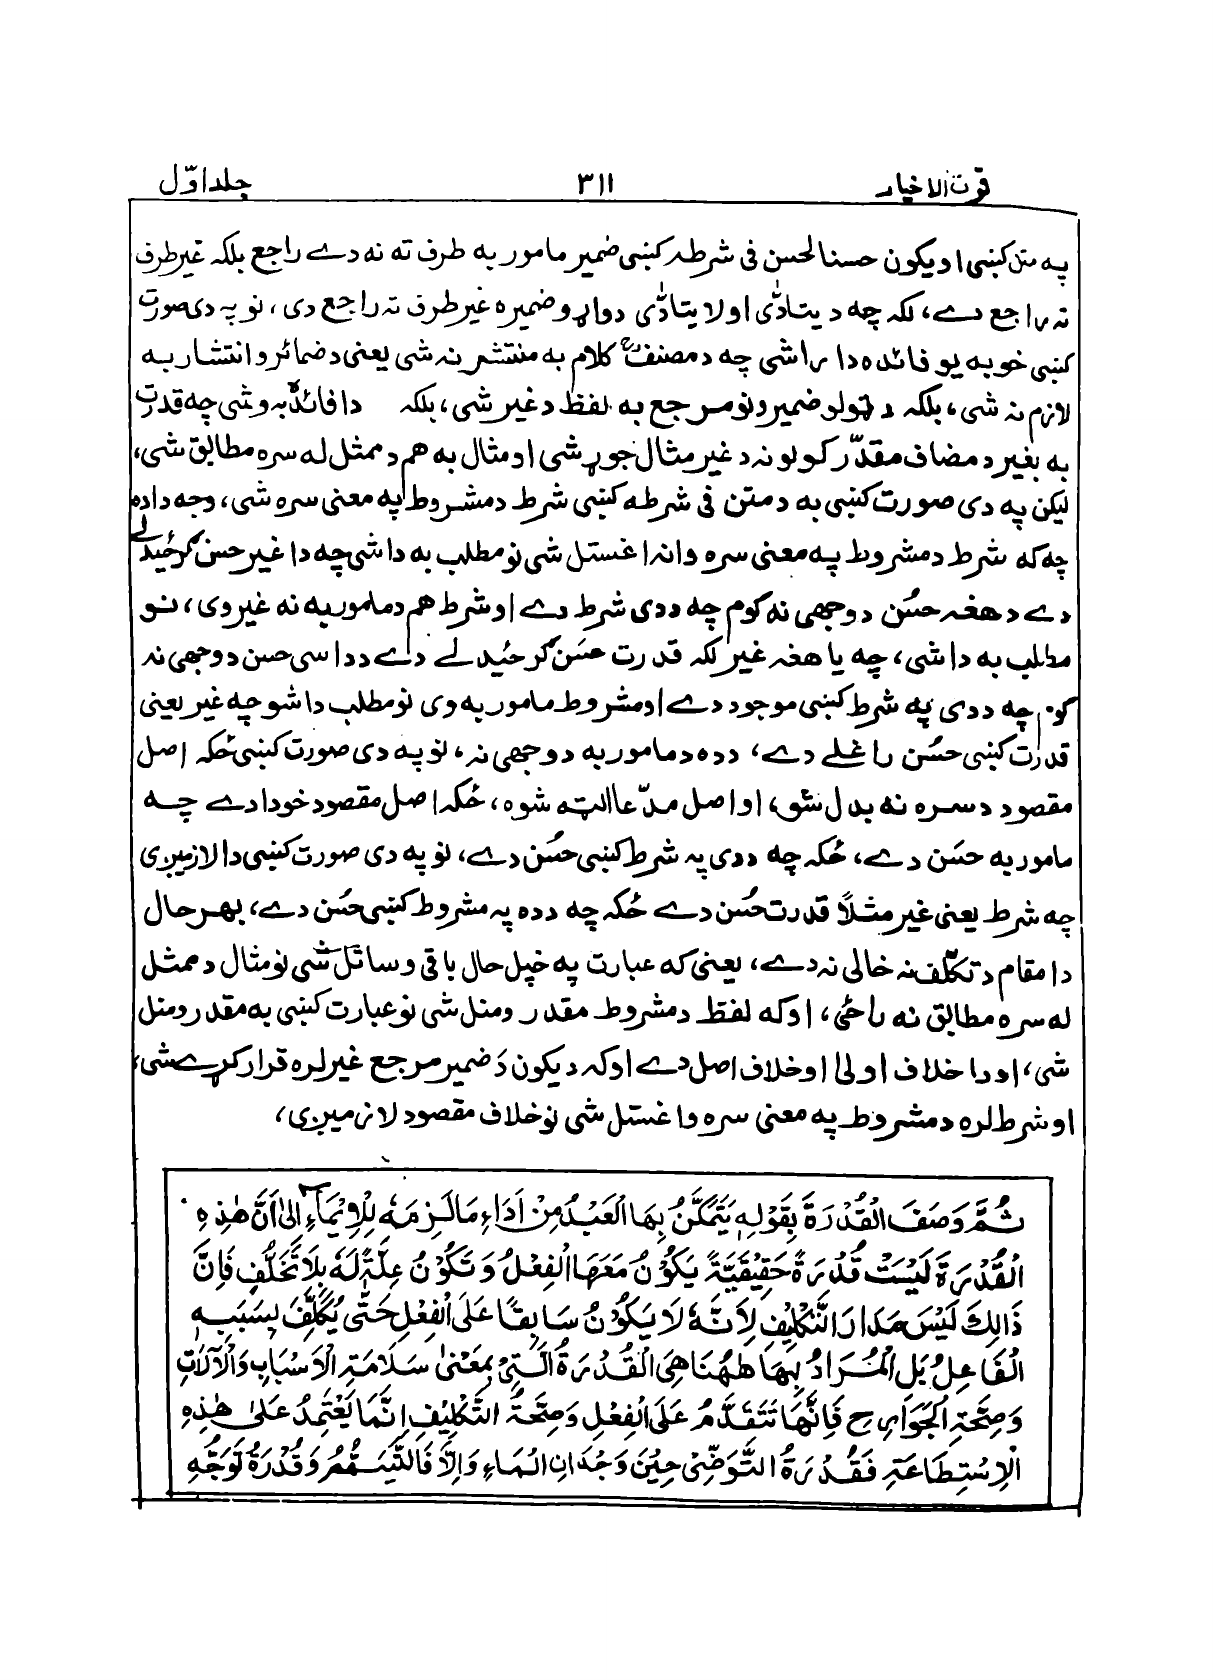 قوت الاخیار ۳۱۱ جلد اوّل
په متن کښې او یکون حسنا لحسن فی شرطه کښې ضمیر مامور به طرف ته نه دے راجع بلکه غیر طرف
ته راجع دے، لکه چه د یتادّی او لا یتادّی دواړو ضمیره غیر طرف ته راجع دی، نو په دی صورت
کښې خو به یو فائده دا راشی چه د مصنفؒ کلام به منتشر نه شی یعنی د ضمائرو انتشار به
لازم نه شی، بلکه د ټولو ضمیرونو مرجع به لفظ د غیر شی، بلکه دا فائده به وشی چه قدرت
به بغیر د مضاف مقدّر کولو نه د غیر مثال جوړ شی او مثال به هم د ممثل له سره مطابق شی،
لیکن په دی صورت کښې به د متن فی شرطه کښې شرط د مشروط په معنی سره شی، وجه دا ده
چه که شرط د مشروط په معنی سره وانه اغستل شی نو مطلب به دا شی چه دا غیر حسن گرځیدلے
دے د هغه حسُن د وجهی نه کوم چه د دی شرط دے او شرط هم د مامور به نه غیر وی، نو
مطلب به دا شی، چه یا هغه غیر لکه قدرت حسَن گرځیدلے دے د داسی حسن د وجهی نه
کوم چه د دی په شرط کښې موجود دے او مشروط مامور به وی نو مطلب دا شو چه غیر یعنی
قدرت کښې حسُن راغلے دے، د ده د مامور به د وجهی نه، نو په دی صورت کښې ځکه اصل
مقصود د سره نه بدل شو، او اصل مدّعا الټه شوه، ځکه اصل مقصود خو دا دے چه
مامور به حسَن دے، ځکه چه د دی په شرط کښې حسُن دے، نو په دی صورت کښې دا لازمیږی
چه شرط یعنی غیر مثلاً قدرت حسُن دے ځکه چه د ده په مشروط کښې حسُن دے، بهر حال
دا مقام د تکلّف نه خالی نه دے، یعنی که عبارت په خپل حال باقی وساتل شی نو مثال د ممثل
له سره مطابق نه راځی، او که لفظ د مشروط مقدر ومنل شی نو عبارت کښې به مقدر ومنل
شی، او دا خلاف اولیٰ او خلاف اصل دے او که د یکون دَ ضمیر مرجع غیر لره قرار کړے شی،
او شرط لره د مشروط په معنی سره واغستل شی نو خلاف مقصود لازمیږی،
ثُمَّ وَصَفَ الْقُدْرَةَ بِقَوْلِهٖ یَتَمَکَّنُ بِهَا الْعَبْدُ مِنْ اَدَاءِ مَا لَزِمَهٗ لِلْاِیْمَاءِ اِلیٰ اَنَّ هٰذِهِ
الْقُدْرَةَ لَیْسَتْ قُدْرَةً حَقِیْقِیَّةً یَکُوْنُ مَعَهَا الْفِعْلُ وَتَکُوْنُ عِلَّةً لَهٗ بِلَا تَخَلُّفٍ فَاِنَّ
ذَالِكَ لَیْسَ مَدَارَ التَّکْلِیْفِ لِاَنَّهٗ لَا یَکُوْنُ سَابِقًا عَلَی الْفِعْلِ حَتّٰی یُکَلَّفَ بِسَبَبِهٖ
الْفَاعِلُ بَلِ الْمُرَادُ بِهَا هٰهُنَا هِیَ الْقُدْرَةُ الَّتِیْ بِمَعْنیٰ سَلَامَةِ الْاَسْبَابِ وَالْاٰلَاتِ
وَصِحَّةِ الْجَوَارِحِ فَاِنَّهَا تَتَقَدَّمُ عَلَی الْفِعْلِ وَصِحَّةُ التَّکْلِیْفِ اِنَّمَا یَعْتَمِدُ عَلیٰ هٰذِهِ
الْاِسْتِطَاعَةِ فَقُدْرَةُ التَّوَضِّیْ حِیْنَ وَجْدَانِ الْمَاءِ وَاِلَّا فَالتَّیَمُّمُ وَقُدْرَةُ تَوَجُّهِ